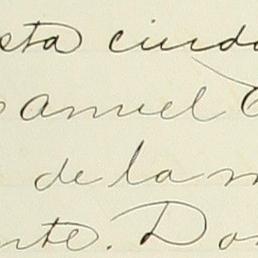 esta ciuda
anuel
de la m
nte. Do